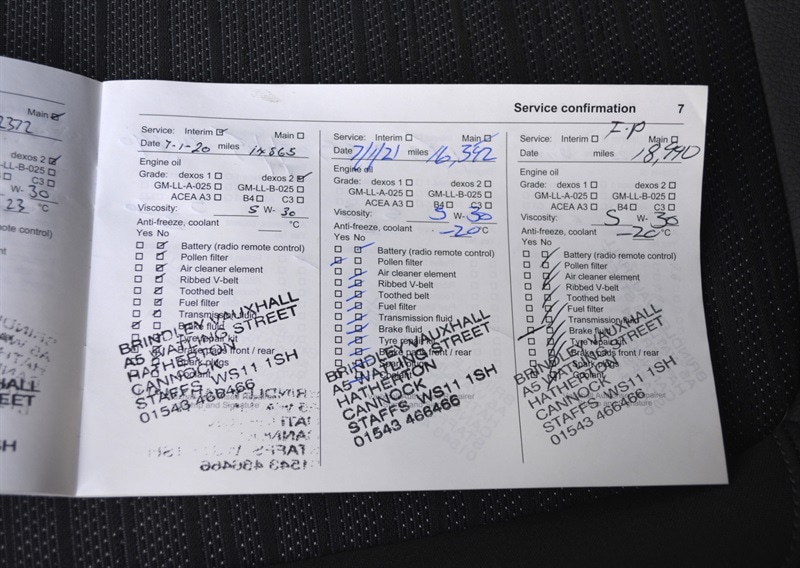 Main ☑
2372
dexos 2 ☑
GM-LL-B-025 ☐
C3 ☐
W- 30
23 °C
Service confirmation 7
Service: Interim ☑ Main ☐
Date 7-1-20 miles 14865
Engine oil
Grade: dexos 1 ☐ dexos 2 ☑
GM-LL-A-025 ☐ GM-LL-B-025 ☐
ACEA A3 ☐ B4 ☐ C3 ☐
Viscosity: 5 W- 30
Anti-freeze, coolant °C
Yes No
Battery (radio remote control)
Pollen filter
Air cleaner element
Ribbed V-belt
Toothed belt
Fuel filter
Transmission fluid
Brake fluid
Tyre repair kit
Brake pads front / rear
BRINDLEY VAUXHALL
A5 WATLING STREET
HATHERTON
CANNOCK
STAFFS WS11 1SH
01543 466466
Service: Interim ☐ Main ☑
Date 7/1/21 miles 16,392
Engine oil
Grade: dexos 1 ☐ dexos 2 ☐
GM-LL-A-025 ☐ GM-LL-B-025 ☐
ACEA A3 ☐ B4 ☐ C3 ☐
Viscosity: 5 W- 30
Anti-freeze, coolant -20 °C
Yes No
Battery (radio remote control)
Pollen filter
Air cleaner element
Ribbed V-belt
Toothed belt
Fuel filter
Transmission fluid
Brake fluid
Tyre repair kit
Brake pads front / rear
Spark plugs
BRINDLEY VAUXHALL
A5 WATLING STREET
HATHERTON
CANNOCK
STAFFS WS11 1SH
01543 466466
I.P
Service: Interim ☐ Main ☐
Date miles 18,990
Engine oil
Grade: dexos 1 ☐ dexos 2 ☐
GM-LL-A-025 ☐ GM-LL-B-025 ☐
ACEA A3 ☐ B4 ☐ C3 ☐
Viscosity: 5 W- 30
Anti-freeze, coolant -20 °C
Yes No
Battery (radio remote control)
Pollen filter
Air cleaner element
Ribbed V-belt
Toothed belt
Fuel filter
Transmission fluid
Brake fluid
Tyre repair kit
Brake pads front / rear
Spark plugs
Coolant
BRINDLEY VAUXHALL
A5 WATLING STREET
HATHERTON
CANNOCK
STAFFS WS11 1SH
01543 466466